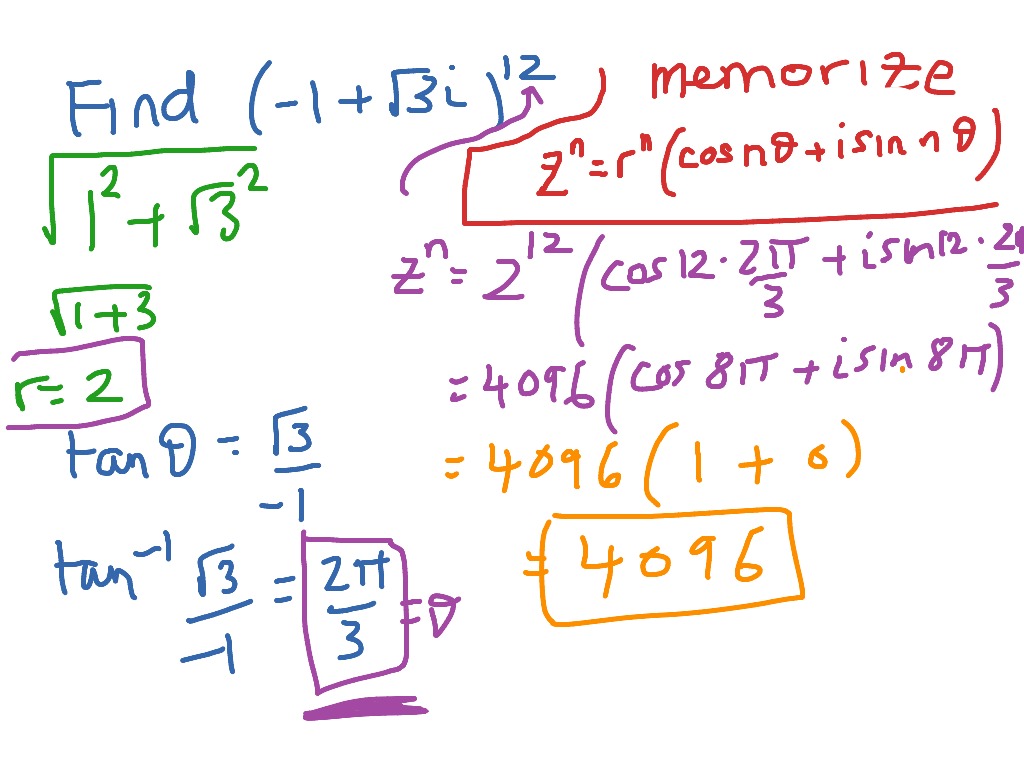 Find (-1+√3i)^12
memorize
z^n=r^n(cosnθ+isin nθ)
√(1²+√3²)
√(1+3)
r=2
tanθ=√3/-1
tan^-1 √3/-1=2π/3=θ
z^n=2^12(cos12·2π/3+isin12·2π/3
=4096(cos8π+isin8π)
=4096(1+0)
=4096